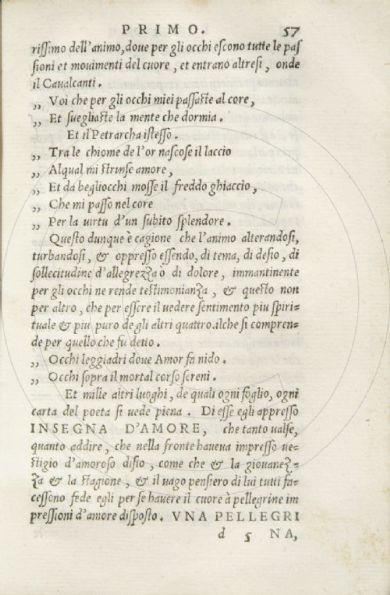 PRIMO. 57
rissimo dell'animo, doue per gli occhi escono tutte le pas
sioni et mouimenti del cuore, et entrano altresi, onde
il Caualcanti.
,, Voi che per gli occhi miei passaste al core,
,, Et suegliaste la mente che dormia.
Et il Petrarcha istesso.
,, Tra le chiome de l'or nascose il laccio
,, Alqual mi strinse amore,
,, Et da begliocchi mosse il freddo ghiaccio,
,, Che mi passo nel core
,, Per la uirtu d'un subito splendore.
Questo dunque è cagione che l'animo alterandosi,
turbandosi, & oppresso essendo, di tema, di desio, di
sollecitudine d'allegrezza ò di dolore, immantinente
per gli occhi ne rende testimonianza, & questo non
per altro, che per essere il uedere sentimento piu spiri-
tuale & piu puro de gli altri quattro. ilche si compren-
de per quello che fu detto.
,, Occhi leggiadri doue Amor fa nido.
,, Occhi sopra il mortal corso sereni.
Et mille altri luoghi, de quali ogni foglio, ogni
carta del poeta si uede piena. Di esse egli appresso
INSEGNA D'AMORE, che tanto ualse,
quanto addire, che nella fronte haueua impresso ue-
stigio d'amoroso disio, come che & la giouanez-
za & la stagione, & il uago pensiero di lui tutti fa-
cessono fede egli per se hauere il cuore à pellegrine im
pressioni d'amore disposto. VNA PELLEGRI
d 5 NA,